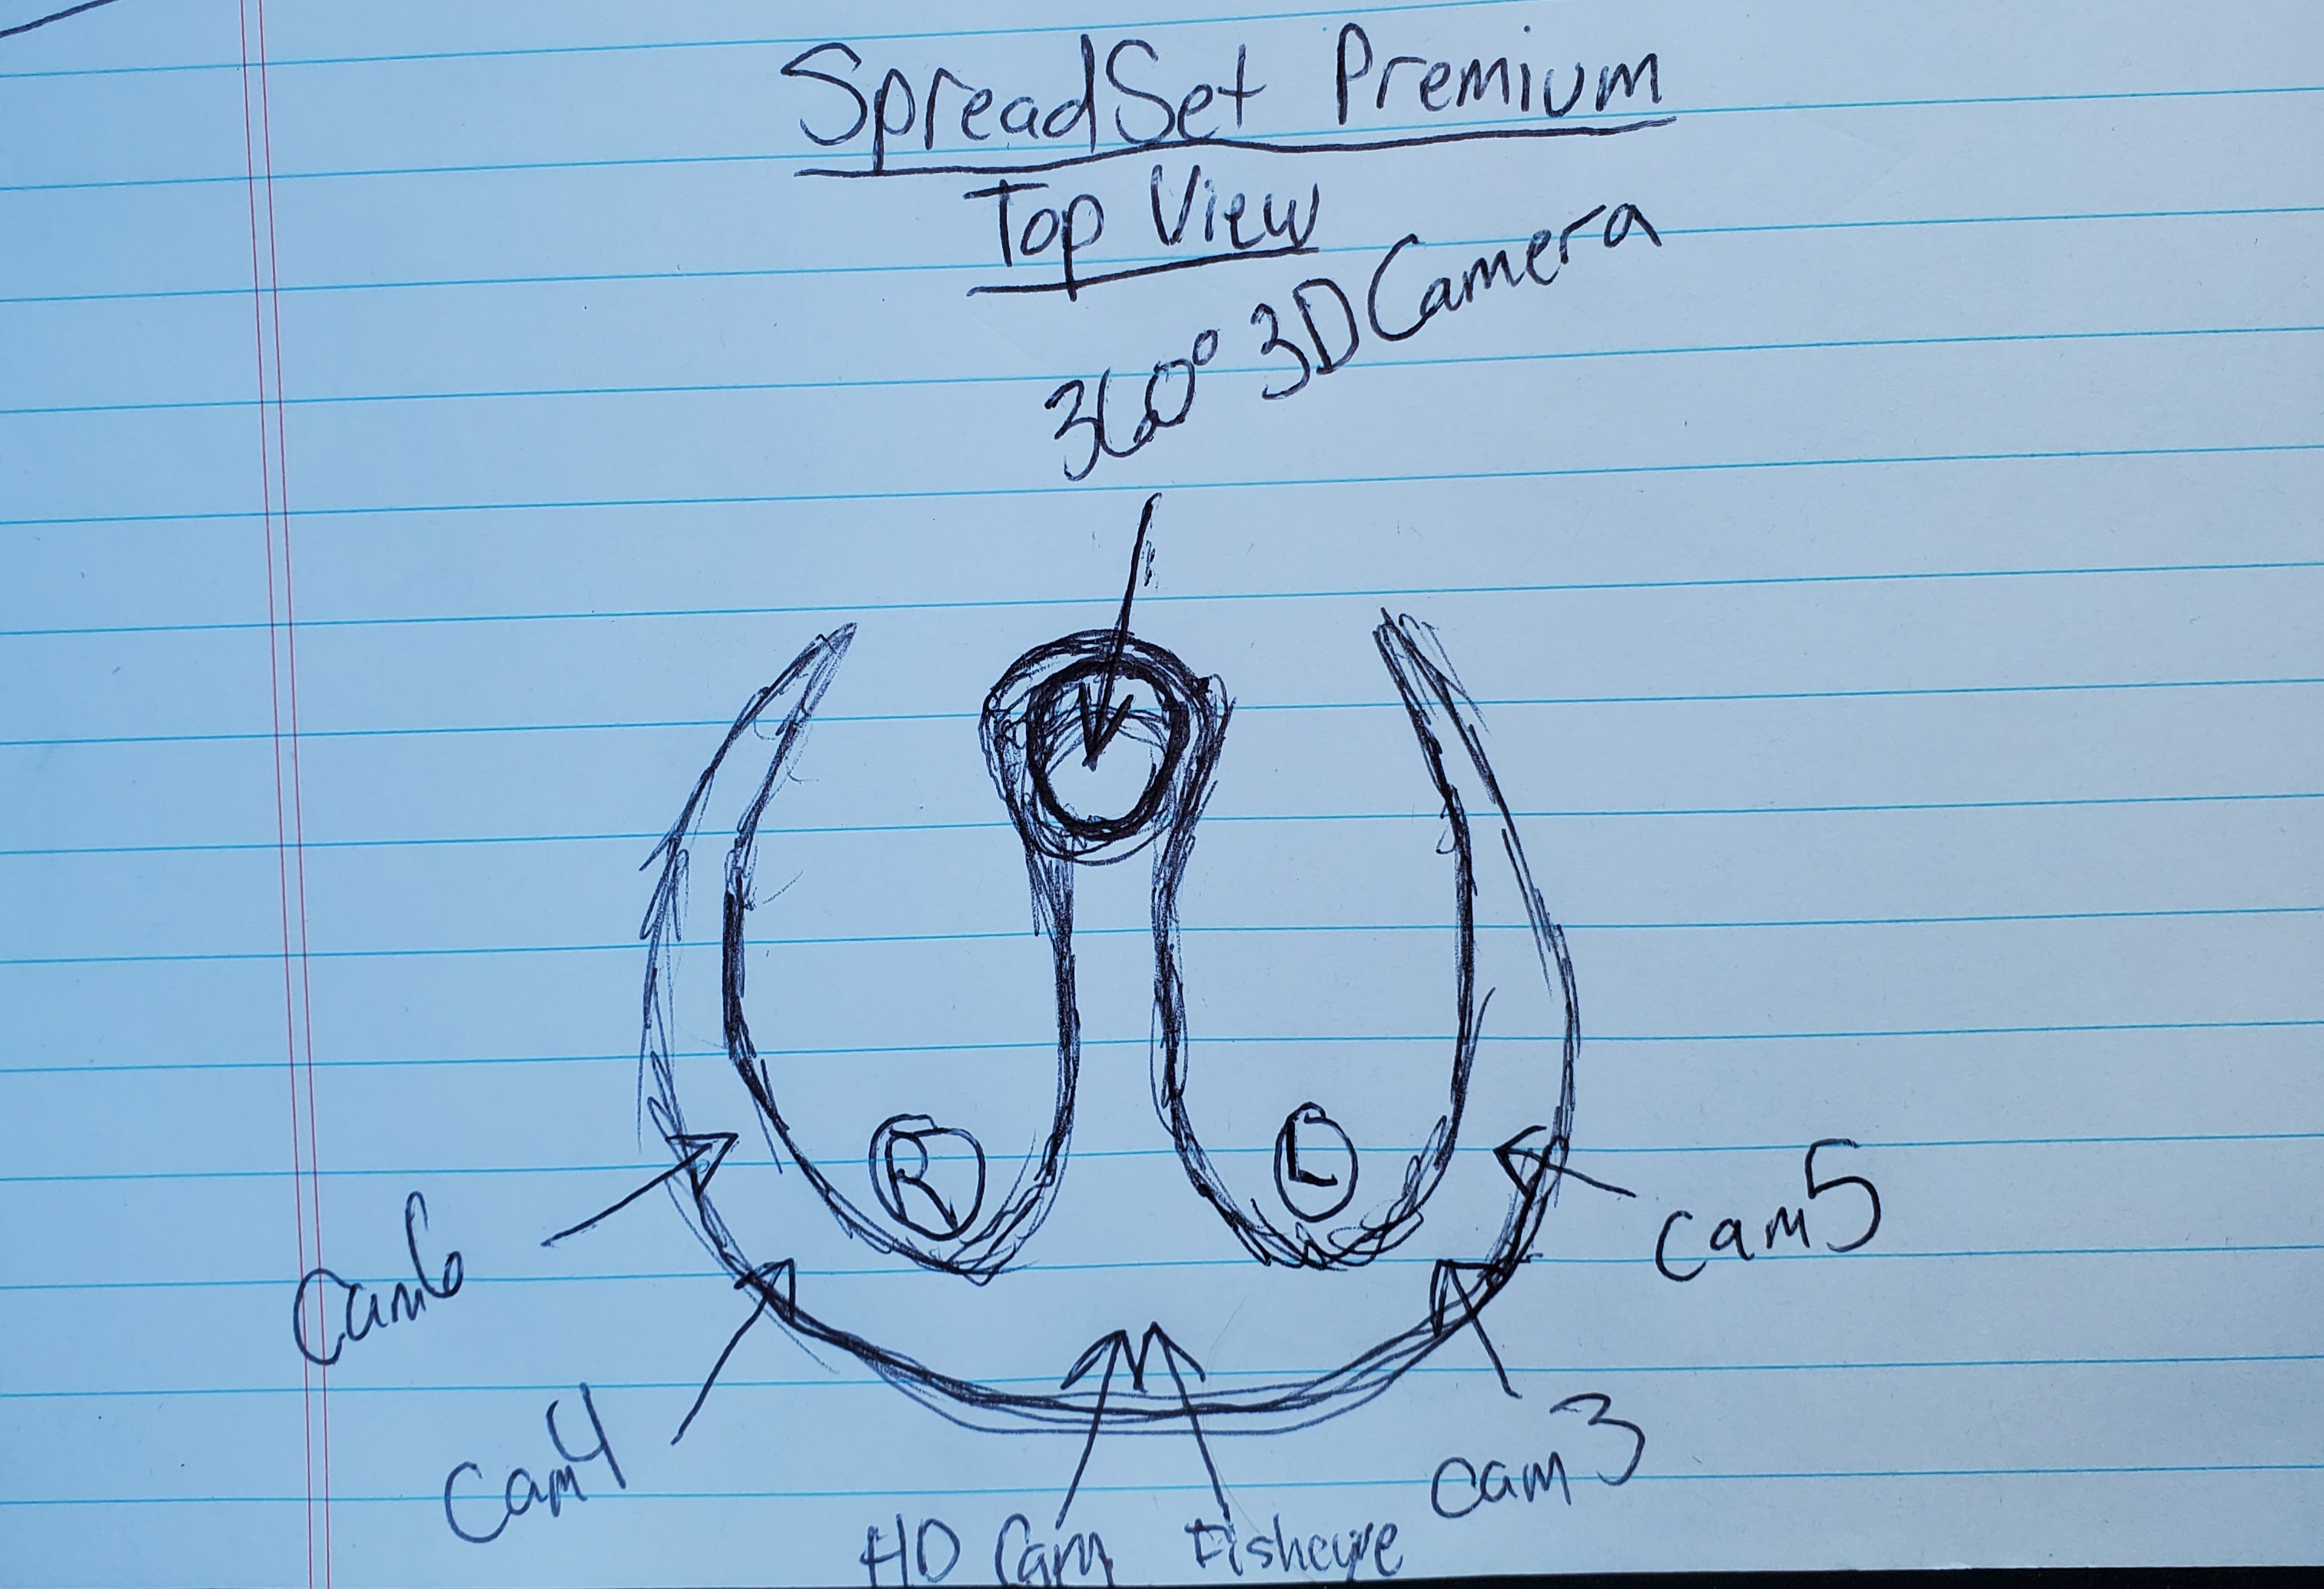 SpreadSet Premium
Top View
360° 3D Camera
R
L
Cam6
Cam5
Cam4
Cam3
HD Cam Fisheye